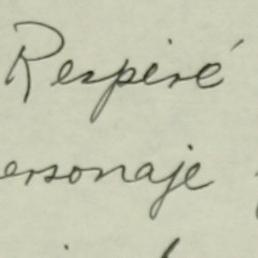 Respiré
ersonaje